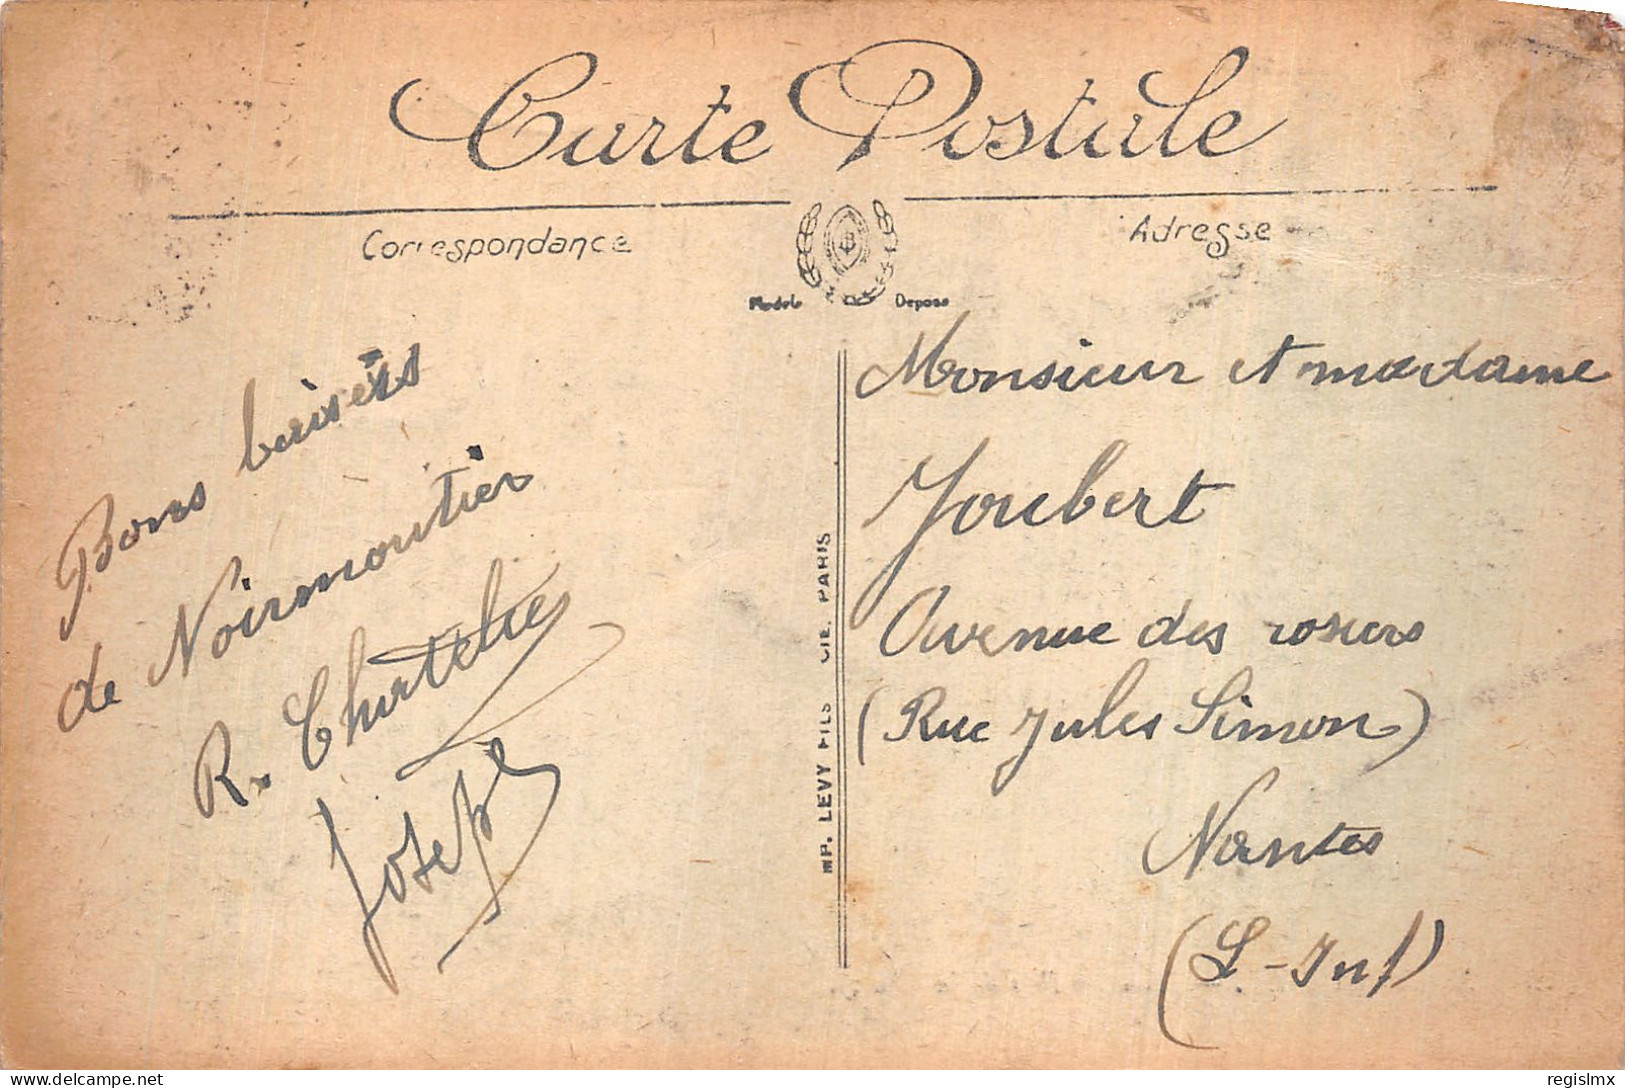 Carte Postale
Correspondance
Adresse
Modele Depose
Bons baisérs
de Noirmoutier
R. 
Joseph
IMP. LEVY FILS CIE. PARIS
Monsieur et madame
Joubert
Avenue des rosiers
(Rue Jules Simon)
Nantes
(L-Inf)
delcampe.net
regislmx